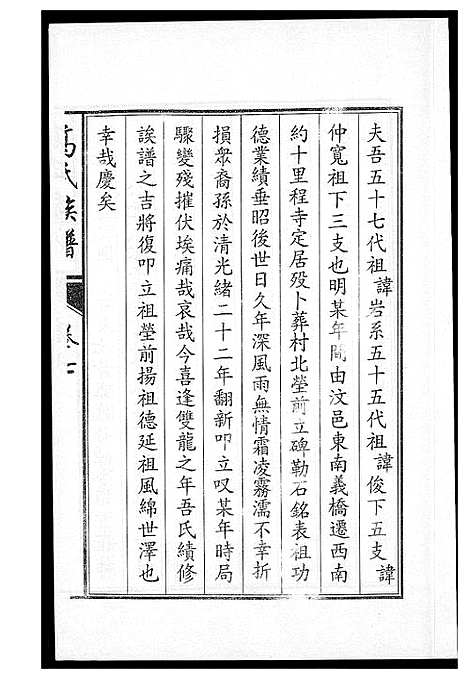 夫吾五十七代祖諱岩系五十五代祖諱俊下五支諱
仲寬祖下三支也明某年間由汶邑東南義橋遷西南
約十里程寺定居歿卜葬村北塋前立碑勒石銘表祖功
德業績垂昭後世日久年深風雨無情霜凌霧濡不幸折
損眾裔孫於清光緒二十二年翻新叩立叹某年時局
驟變殘摧伏埃痛哉哀哉今喜逢雙龍之年吾氏績修
誒譜之吉將復叩立祖塋前揚祖德延祖風綿世澤也
幸哉慶矣
高氏族譜
卷七